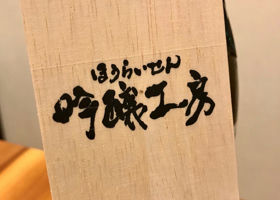 ほうらいせん
吟醸工房